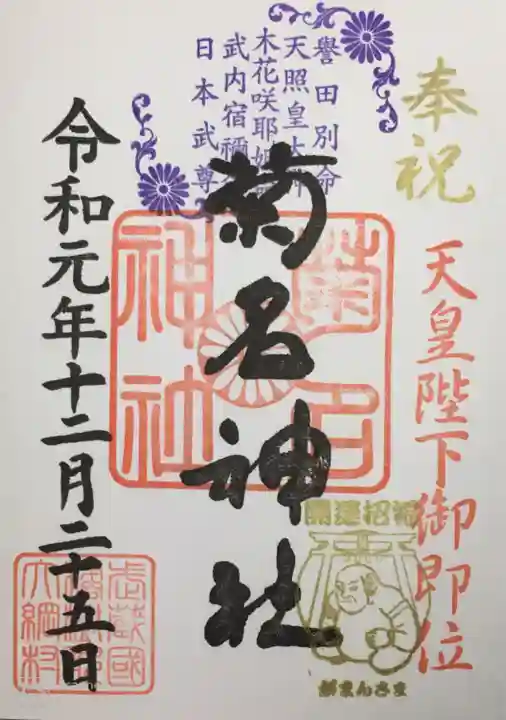 奉祝
天皇陛下御即位
譽田別命
天照皇大神
木花咲耶姫命
武内宿禰命
日本武尊
菊名神社
菊名
神社
開運招福
がまんさま
令和元年十二月二十五日
武蔵國
橘樹郡
大綱村